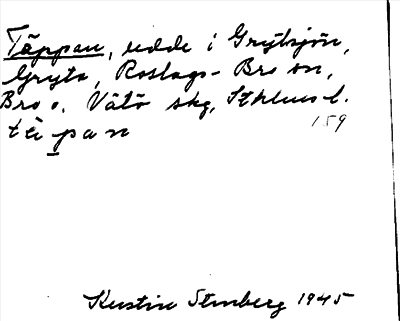 Täppan, udde i Grytsjön,
Gryta, Roslags-Bro sn,
Bro o. Vätö skg, Sthlms l.
tä̀pan
159
Kerstin Stenberg 1945